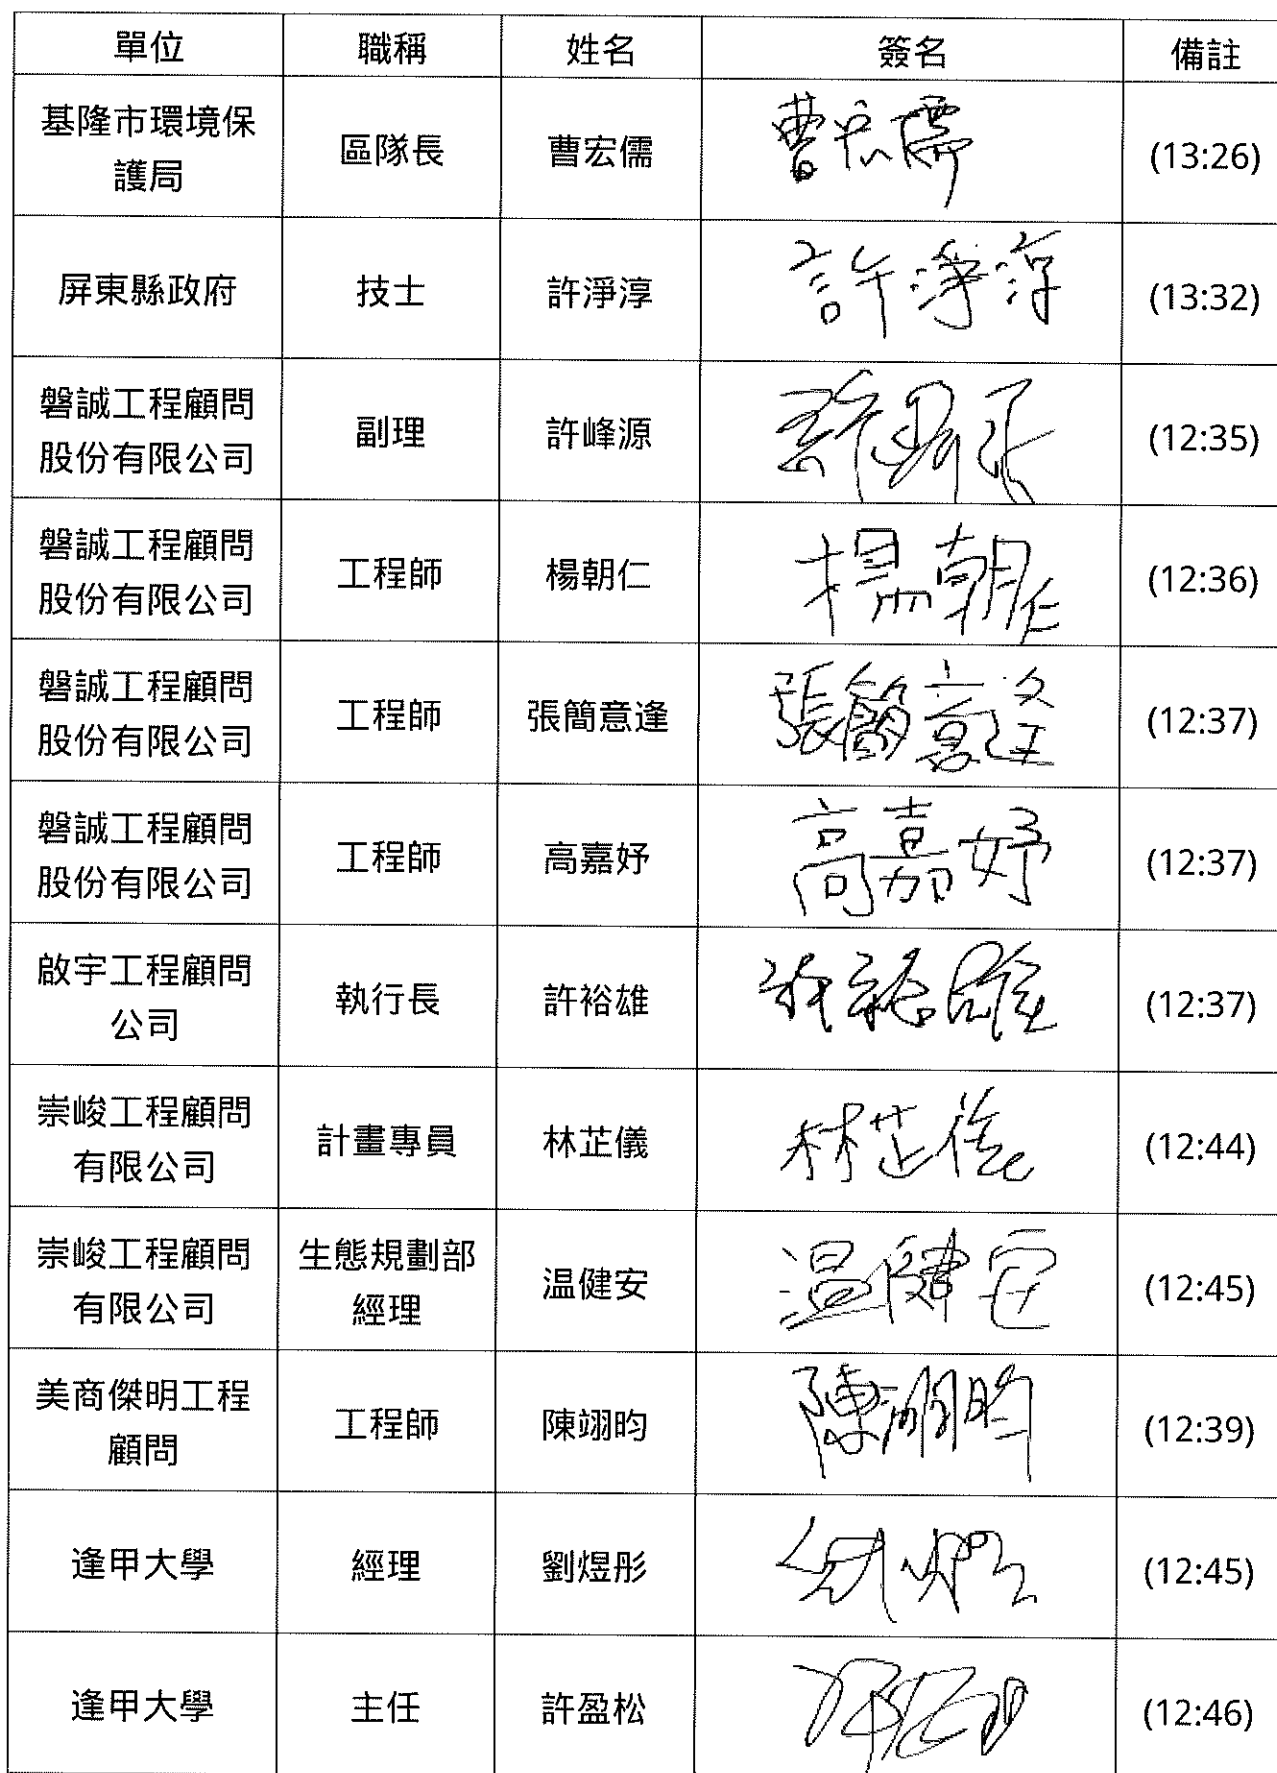 單位 職稱 姓名 簽名 備註
基隆市環境保
護局 區隊長 曹宏儒 曹宏儒 (13:26)
屏東縣政府 技士 許淨淳 許淨淳 (13:32)
磐誠工程顧問
股份有限公司 副理 許峰源 (12:35)
磐誠工程顧問
股份有限公司 工程師 楊朝仁 楊朝仁 (12:36)
磐誠工程顧問
股份有限公司 工程師 張簡意逢 張簡意逢 (12:37)
磐誠工程顧問
股份有限公司 工程師 高嘉妤 高嘉妤 (12:37)
啟宇工程顧問
公司 執行長 許裕雄 許裕雄 (12:37)
崇峻工程顧問
有限公司 計畫專員 林芷儀 林芷儀 (12:44)
崇峻工程顧問
有限公司 生態規劃部
經理 温健安 温健安 (12:45)
美商傑明工程
顧問 工程師 陳翊昀 陳翊昀 (12:39)
逢甲大學 經理 劉煜彤 (12:45)
逢甲大學 主任 許盈松 (12:46)